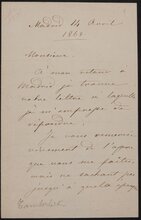 Madrid 14 Avril
1869
Monsieur.
A mon retour à
Madrid je trouve
votre lettre à laquelle
je m'empresse de
répondre.
Je vous remercie
vivement de l'
que vous me faites,
mais ne sachant pas
jusqu'à quelle
Tamberlick